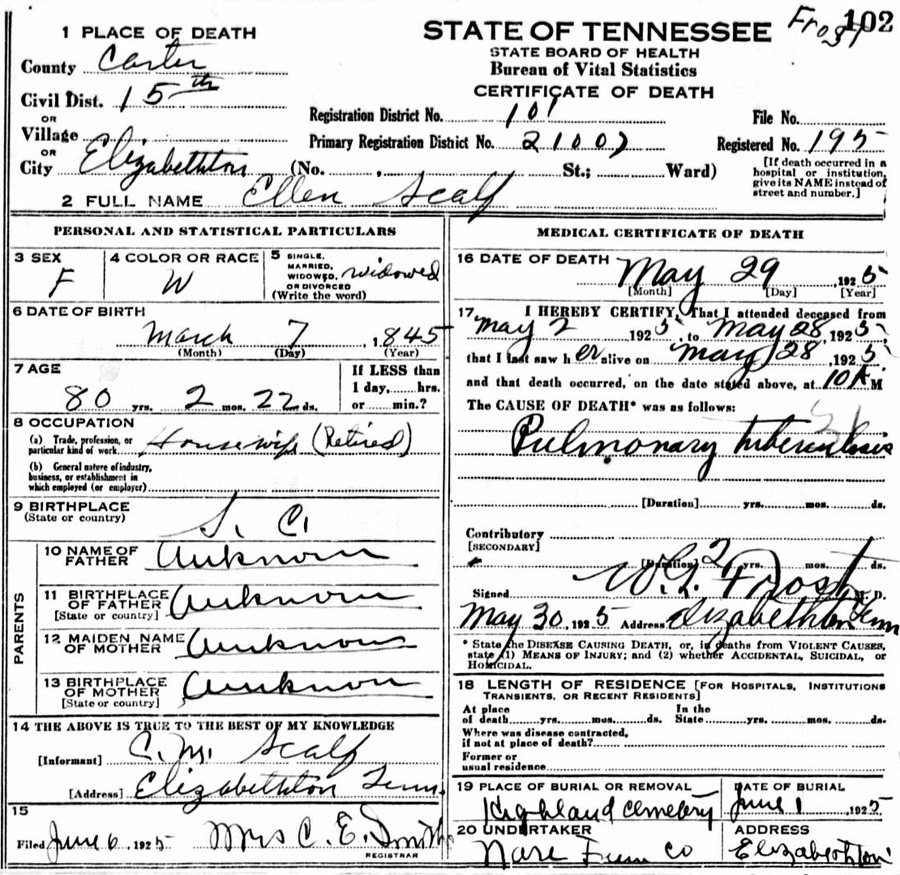 STATE OF TENNESSEE
Frost
102
STATE BOARD OF HEALTH
Bureau of Vital Statistics
CERTIFICATE OF DEATH
1 PLACE OF DEATH
County Carter
Civil Dist. 15th
OR
Village
OR
City Elizabethton (No. , St.; Ward)
Registration District No. 101
File No.
Primary Registration District No. 21007
Registered No. 195
[If death occurred in a
hospital or institution,
give its NAME instead of
street and number.]
2 FULL NAME Ellen Scalf
PERSONAL AND STATISTICAL PARTICULARS
3 SEX
F
4 COLOR OR RACE
W
5 SINGLE,
MARRIED,
WIDOWED, widowed
OR DIVORCED
(Write the word)
6 DATE OF BIRTH
March 7, 1845
(Month) (Day) (Year)
7 AGE
80 yrs. 2 mos. 22 ds.
If LESS than
1 day, hrs.
or min.?
8 OCCUPATION
(a) Trade, profession, or
particular kind of work Housewife (Retired)
(b) General nature of industry,
business, or establishment in
which employed (or employer)
9 BIRTHPLACE
(State or country) S. C.
PARENTS
10 NAME OF
FATHER Unknown
11 BIRTHPLACE
OF FATHER Unknown
[State or country]
12 MAIDEN NAME
OF MOTHER Unknown
13 BIRTHPLACE
OF MOTHER Unknown
[State or country]
14 THE ABOVE IS TRUE TO THE BEST OF MY KNOWLEDGE
[Informant] C. M. Scalf
[Address] Elizabethton Tenn.
15
Filed June 6, 1925 Mrs C. E. Smith
REGISTRAR
MEDICAL CERTIFICATE OF DEATH
16 DATE OF DEATH
May 29, 1925
[Month] [Day] [Year]
17 I HEREBY CERTIFY, That I attended deceased from
May 2 1925, to May 28, 1925,
that I last saw her alive on May 28, 1925
and that death occurred, on the date stated above, at 10 A M
The CAUSE OF DEATH* was as follows:
Pulmonary tuberculosis
[Duration] yrs. mos. ds.
Contributory
[SECONDARY]
[Duration] 2 yrs. mos. ds.
Signed Frost M. D.
May 30, 1925 Address Elizabethton Tenn
* State the DISEASE CAUSING DEATH, or, in deaths from VIOLENT CAUSES,
state (1) MEANS OF INJURY; and (2) whether ACCIDENTAL, SUICIDAL, or
HOMICIDAL.
18 LENGTH OF RESIDENCE [FOR HOSPITALS, INSTITUTIONS
TRANSIENTS, OR RECENT RESIDENTS]
At place
of death yrs. mos. ds.
In the
State yrs. mos. ds.
Where was disease contracted,
if not at place of death?
Former or
usual residence
19 PLACE OF BURIAL OR REMOVAL
Highland Cemetery
DATE OF BURIAL
June 1, 1925
20 UNDERTAKER
Furn Co
ADDRESS
Elizabethton